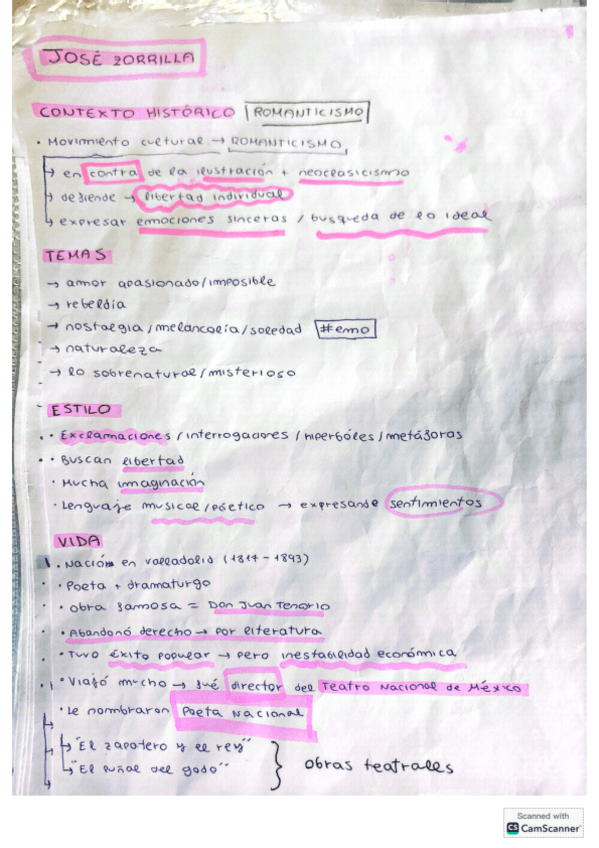 JOSÉ ZORRILLA
CONTEXTO HISTÓRICO ROMANTICISMO
· Movimiento cultural → ROMANTICISMO
→ en contra de la ilustración + neoclasicismo
→ defiende → libertad individual
→ expresar emociones sinceras / busqueda de lo ideal
TEMAS
→ amor apasionado/imposible
→ rebeldía
→ nostalgia/melancolía/soledad #emo
→ naturaleza
→ lo sobrenatural/misterioso
ESTILO
· Exclamaciones/interrogaciones/hiperbóles/metáforas
· Buscan libertad
· Mucha imaginación
· Lenguaje musical/poético → expresando sentimientos
VIDA
· Nación en valladolid (1817-1893)
· Poeta + dramaturgo
· obra famosa = Don Juan Tenorio
· Abandonó derecho → por literatura
· Tuvo éxito popular → pero inestabilidad económica
· Viajó mucho → fué director del Teatro Nacional de México
· Le nombraron Poeta Nacional
↳ "El zapatero y el rey"
↳ "El puñal del godo"
obras teatrales
Scanned with
CS CamScanner